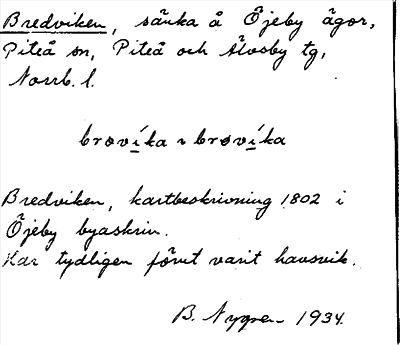 Bredviken, sänka å Öjeby ägor,
Piteå sn, Piteå och Älvsby tg,
Norrb. l.
brøví̱ka ɿ brøví̱ka
Bredviken, kartbeskrivning 1802 i
Öjeby byaskrin.
Har tydligen förut varit havsvik.
B. Nygren 1934.